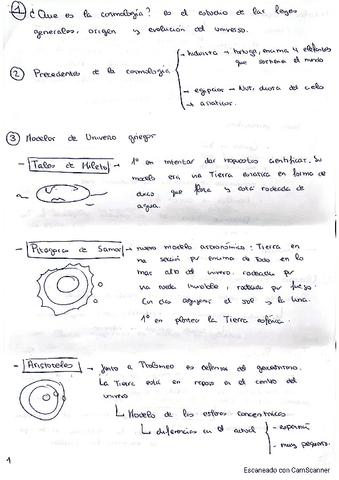 1 ¿Que es la cosmología? es el estudio de las leyes
generales, origen y evolución del universo.
2 Precedentes de la cosmología
→ hinduista → tortuga, encima 4 elefantes
que sostiene el mundo
→ egipcios → Nut, diosa del cielo
→ asiaticos.
3 Modelos de Universo griegos
- Tales de Mileto → 1º en intentar dar respuestas cientificas. Su
modelo era una Tierra estatica en forma de
disco que flota y está rodeada de
agua.
- Pitagoras de Samos → nuevo modelo astronómico: Tierra en
por encima de todo en lo
mas alto del universo. rodeada por
una rueda invisible, rodeada por fuego.
Con dos agujeros: el sol y la luna.
1º en la Tierra esférica.
- Aristoteles → Junto a Ptolomeo es defensor del geocentrismo.
La Tierra está en reposo en el centro del
universo
↳ Modelo de las esferas concentricas
↳ diferencias en el actual
- muy pequeño.
1
Escaneado con CamScanner